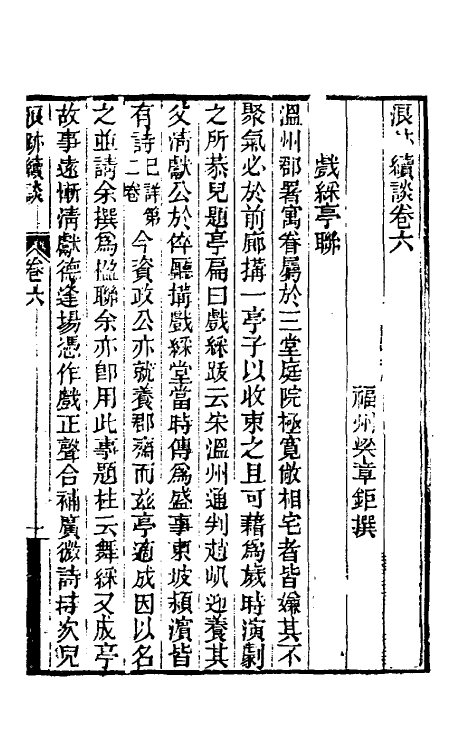 浪跡續談卷六
福州梁章鉅撰
戲綵亭聯
溫州郡署寓眷屬於三堂庭院極寬敞相宅者皆嫌其不
聚氣必於前廊搆一亭子以收束之且可藉為歲時演劇
之所恭兒題亭扁曰戲綵跋云宋溫州通判趙㞦迎養其
父清獻公於倅廳搆戲綵堂當時傳為盛事東坡潁濱皆
有詩已詳第二卷今資政公亦就養郡齋而茲亭適成因以名
之並請余撰為楹聯余亦卽用此事題柱云舞綵又成亭
故事遠慚清獻德逢場憑作戲正聲合補廣微詩時次兒
浪跡續談
卷六
一